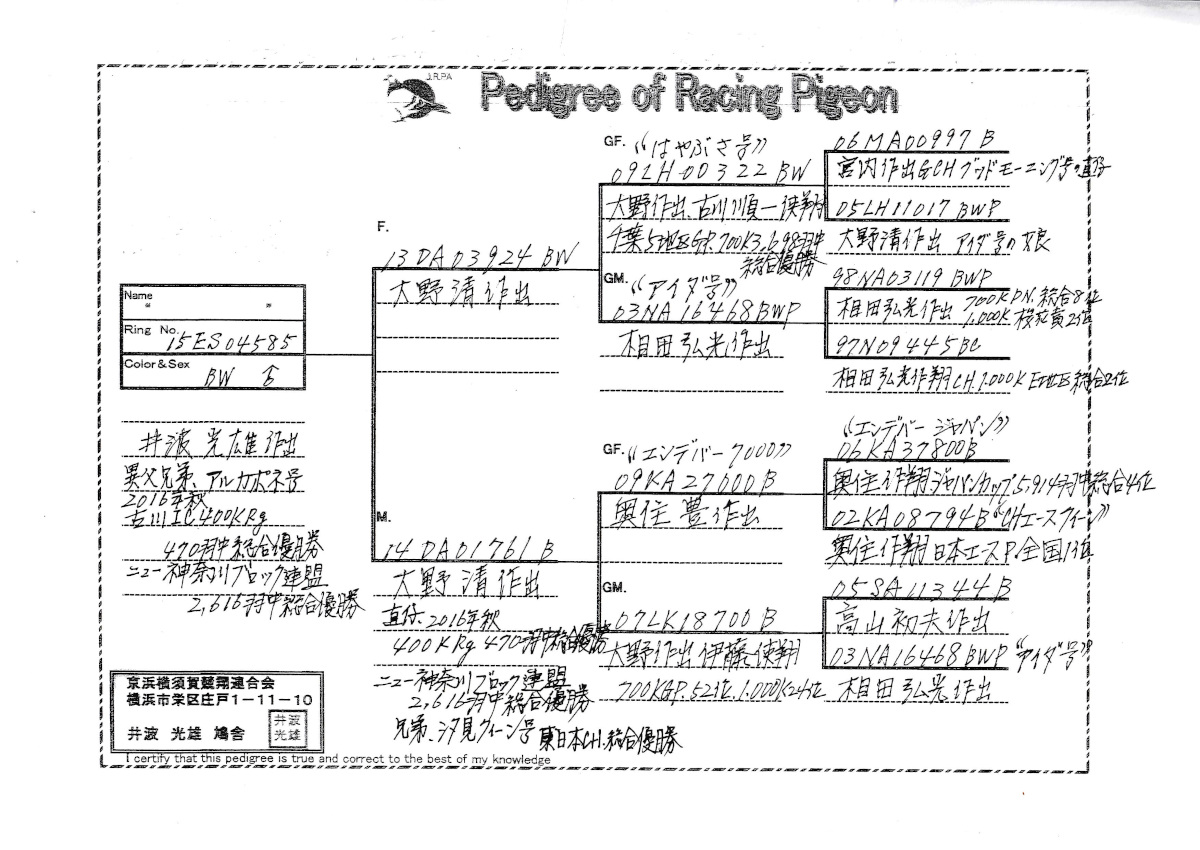 J.R.P.A
Pedigree of Racing Pigeon
Name
“ ”
Ring No.
15ES04585
Color&Sex
BW ♀
井波 光雄 作出
異父兄弟、アルカポネ号
2016年秋
古川IC 400KRg
470羽中総合優勝
ニュー神奈川ブロック連盟
2,616羽中総合優勝
F.
13DA03924 BW
大野清作出
M.
14DA01761 B
大野清作出
直仔、2016年秋
400KRg 470羽中総合優勝
ニュー神奈川ブロック連盟
2,616羽中総合優勝
兄弟、汐見クィーン号 東日本CH.総合優勝
GF. “はやぶさ号”
09LH-00322 BW
大野作出、古川順一使翔
千葉5地区GP.700K3,698羽中
総合優勝
GM. “アイダ号”
03NA16468BWP
相田弘光作出
GF. “エンデバー7000”
09KA27600B
奥住豊作出
GM.
07LK18700B
大野作出 伊藤 使翔
700KGP.52位.1.000K24位
06MA00997 B
宮内作出GCHグッドモーニング号の直仔
05LH11017 BWP
大野清作出 アイダ号の娘
98NA03119 BWP
相田弘光作出 700KDN.総合8位
1.000K 桜花賞2位
97N09445BC
相田弘光作翔CH.1.000K E地区総合2位
“エンデバー ジャパン”
06KA37800B
奥住作翔ジャパンカップ5,914羽中総合4位
02KA08794B “CHエースクィーン”
奥住作翔日本エースP.全国1位
05SA11344 B
高山初夫作出
03NA16468BWP “アイダ号”
相田弘光作出
京浜横須賀競翔連合会
横浜市栄区庄戸1-11-10
井波 光雄 鳩舎
井波
光雄
I certify that this pedigree is true and correct to the best of my knowledge